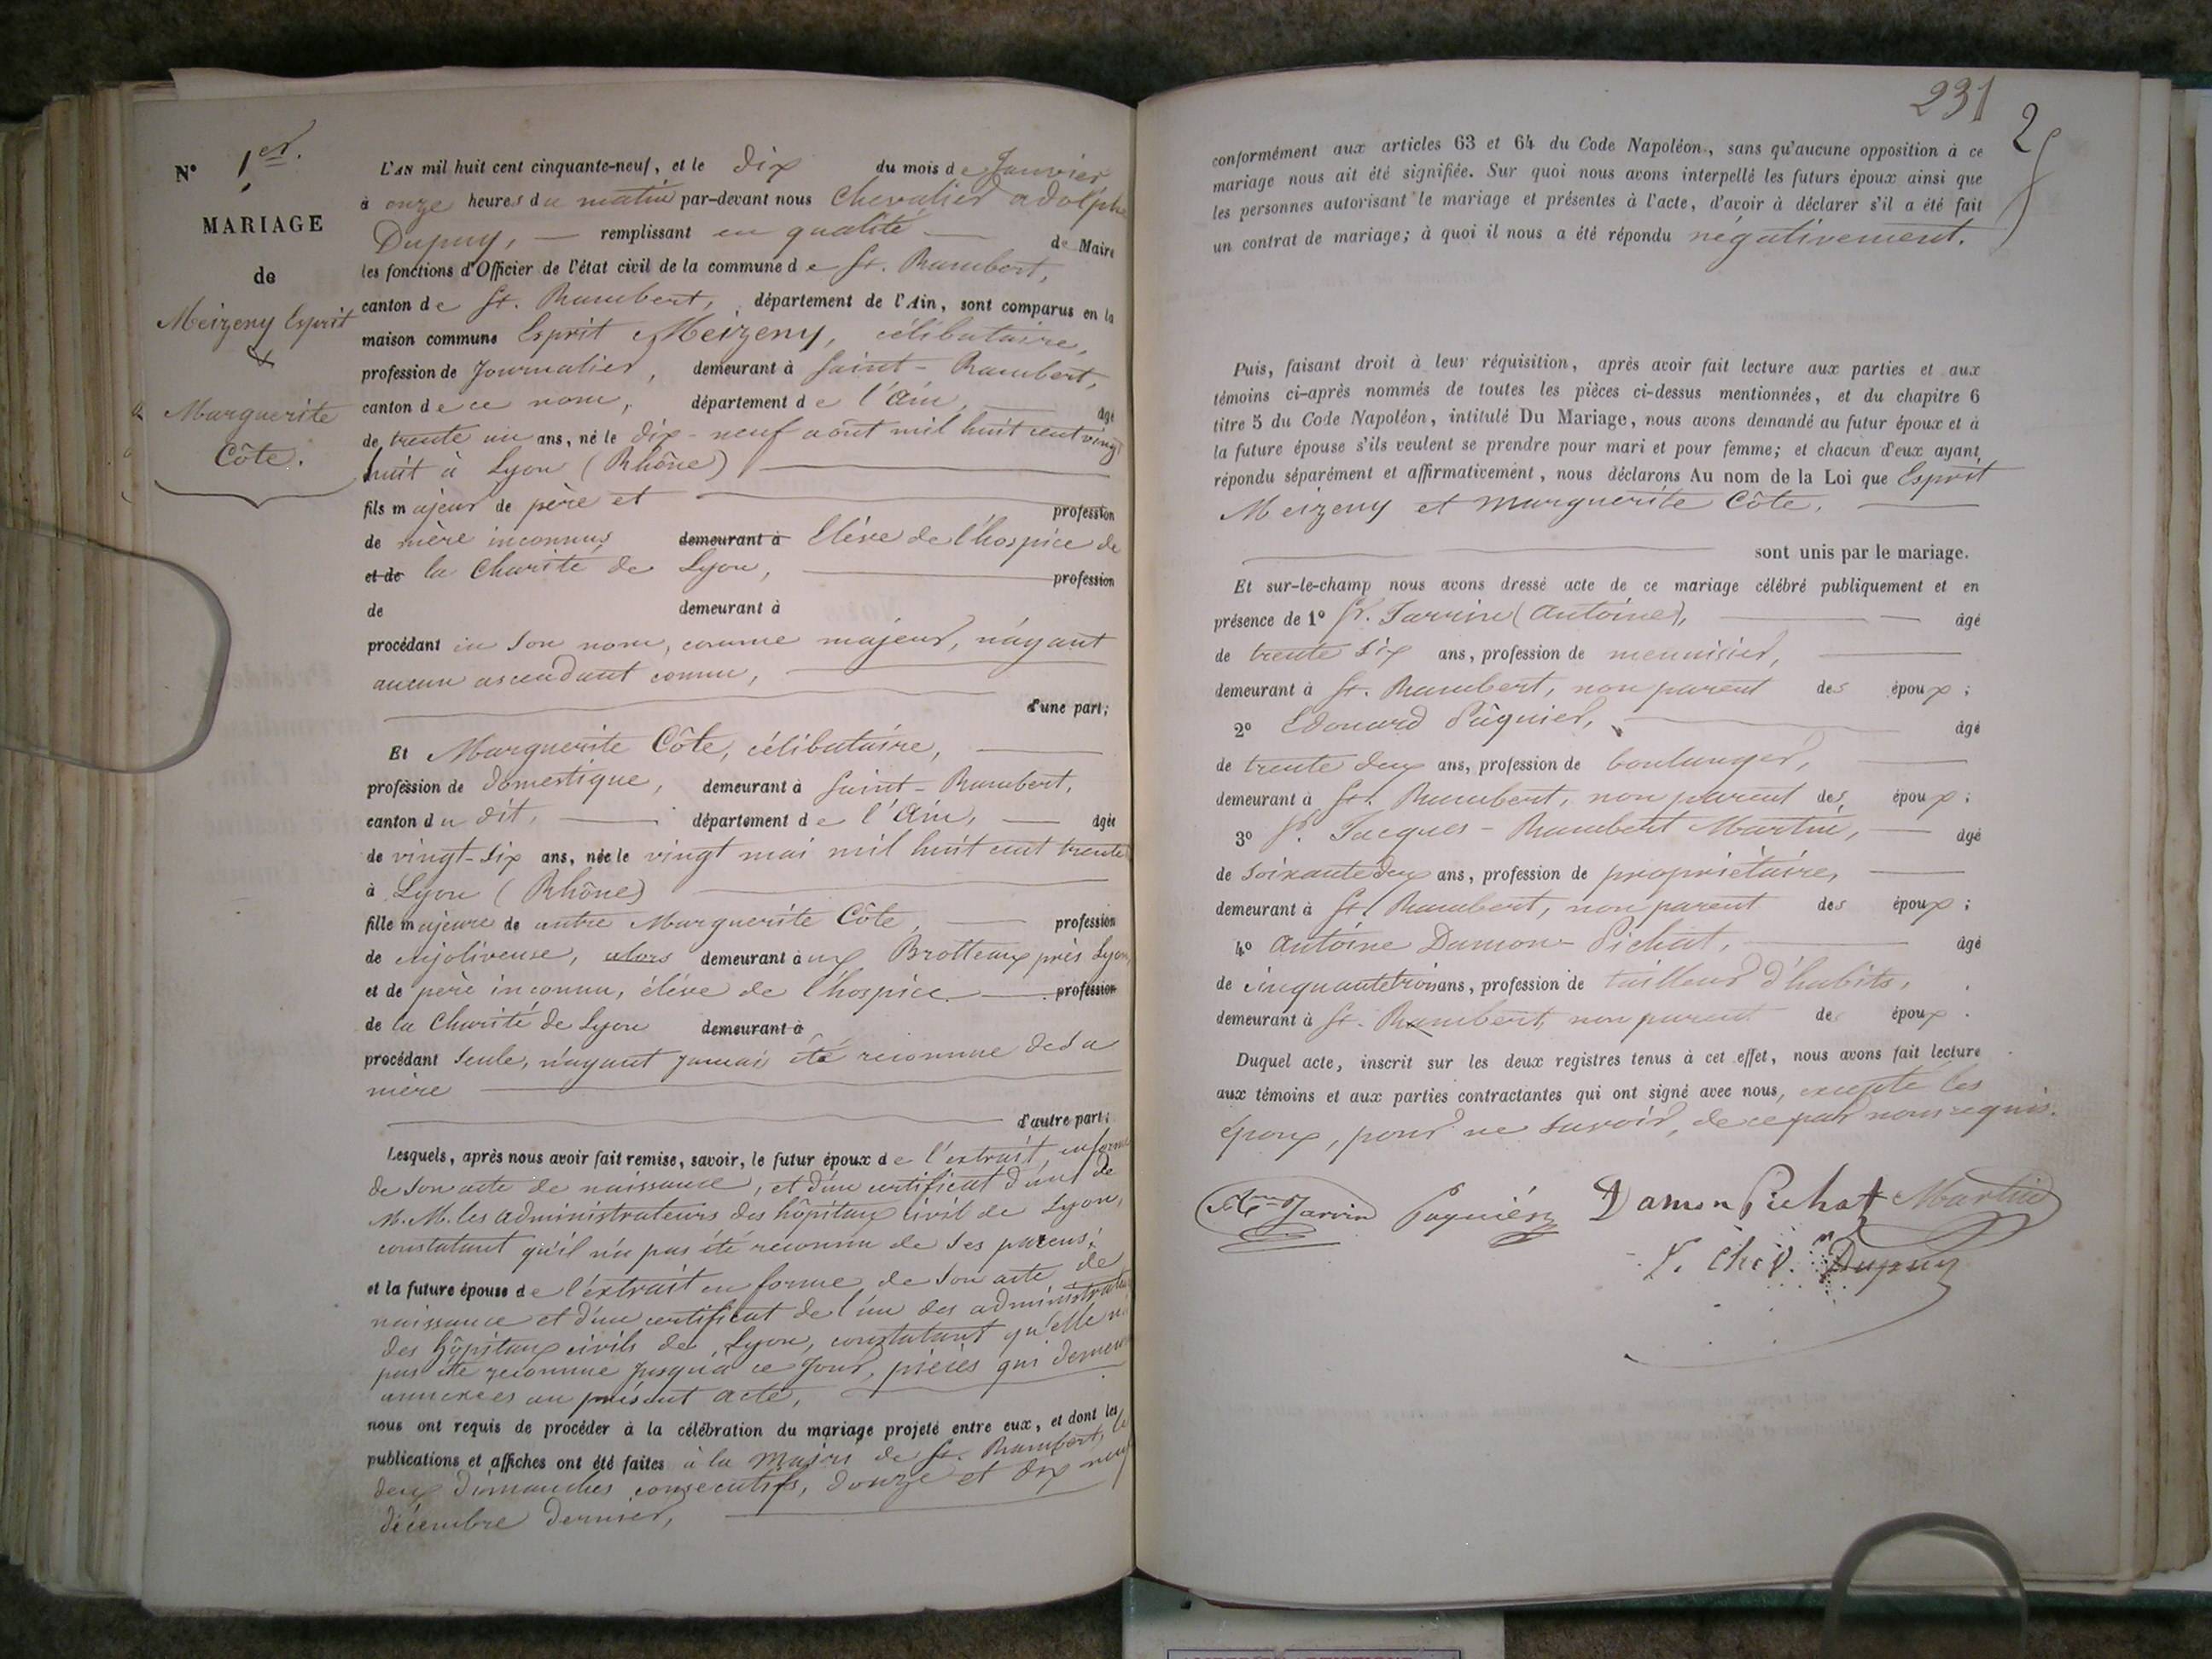 N° 1er.
MARIAGE
de
Meizeny Esprit
&
Marguerite
Côte.
L'AN mil huit cent cinquante-neuf, et le dix du mois de Janvier
à onze heures du matin par-devant nous Chevalier adolphe
Dupuy, remplissant en qualité de Maire
les fonctions d'Officier de l'état civil de la commune de St. Rambert,
canton de St. Rambert, département de l'Ain, sont comparus en la
maison commune Esprit Meizeny, célibataire,
profession de Journalier, demeurant à Saint-Rambert,
canton de ce nom, département de l'Ain, âgé
de trente un ans, né le dix-neuf août mil huit cent vingt
huit à Lyon (Rhône)
fils majeur de père et profession
de mère inconnus demeurant à Elève de l'hospice de
et de la Charité de Lyon, profession
de demeurant à
procédant en son nom, comme majeur, n'ayant
aucun ascendant connu,
d'une part;
Et Marguerite Côte, célibataire,
profession de domestique, demeurant à Saint-Rambert,
canton du dit, département de l'Ain, âgée
de vingt-six ans, née le vingt mai mil huit cent trente
à Lyon (Rhône)
fille majeure de autre Marguerite Côte, profession
de enjoliveuse, alors demeurant aux Brotteaux près Lyon,
et de père inconnu, élève de l'hospice profession
de la Charité de Lyon demeurant à
procédant seule, n'ayant jamais été reconnue de sa
mère
d'autre part;
Lesquels, après nous avoir fait remise, savoir, le futur époux de l'extrait en forme
de son acte de naissance, et d'un certificat d'un de
M.M. les administrateurs des hôpitaux civil de Lyon,
constatant qu'il n'a pas été reconnu de ses parens;
et la future épouse de l'extrait en forme de son acte de
naissance et d'un certificat de l'un des administrateurs
des hôpitaux civils de Lyon, constatant qu'elle n'a
pas été reconnue jusqu'à ce jour, pièces qui demeurent
annexées au présent acte,
nous ont requis de procéder à la célébration du mariage projeté entre eux, et dont les
publications et affiches ont été faites à la Mairie de St. Rambert, les
deux dimanches consecutifs, douze et dix neuf
décembre dernier,
231
2
conformément aux articles 63 et 64 du Code Napoléon, sans qu'aucune opposition à ce
mariage nous ait été signifiée. Sur quoi nous avons interpellé les futurs époux ainsi que
les personnes autorisant le mariage et présentes à l'acte, d'avoir à déclarer s'il a été fait
un contrat de mariage; à quoi il nous a été répondu négativement.
Puis, faisant droit à leur réquisition, après avoir fait lecture aux parties et aux
témoins ci-après nommés de toutes les pièces ci-dessus mentionnées, et du chapitre 6
titre 5 du Code Napoléon, intitulé Du Mariage, nous avons demandé au futur époux et à
la future épouse s'ils veulent se prendre pour mari et pour femme; et chacun d'eux ayant
répondu séparément et affirmativement, nous déclarons Au nom de la Loi que Esprit
Meizeny et Marguerite Côte,
sont unis par le mariage.
Et sur-le-champ nous avons dressé acte de ce mariage célébré publiquement et en
présence de 1° Sr. Jarrin (Antoine), âgé
de trente six ans, profession de menuisier,
demeurant à St. Rambert, non parent des époux;
2° Edouard Pâquier, âgé
de trente deux ans, profession de boulanger,
demeurant à St. Rambert, non parent des époux;
3° Sr. Jacques-Rambert Martin, âgé
de soixante deux ans, profession de propriétaire,
demeurant à St. Rambert, non parent des époux;
4° Antoine Damon-Pichat, âgé
de cinquante trois ans, profession de tailleur d'habits,
demeurant à St. Rambert, non parent des époux.
Duquel acte, inscrit sur les deux registres tenus à cet effet, nous avons fait lecture
aux témoins et aux parties contractantes qui ont signé avec nous, excepté les
époux, pour ne savoir, de ce par nous requis.
Jarrin Paquier Damon Pichat Martin
Chev. Dupuy